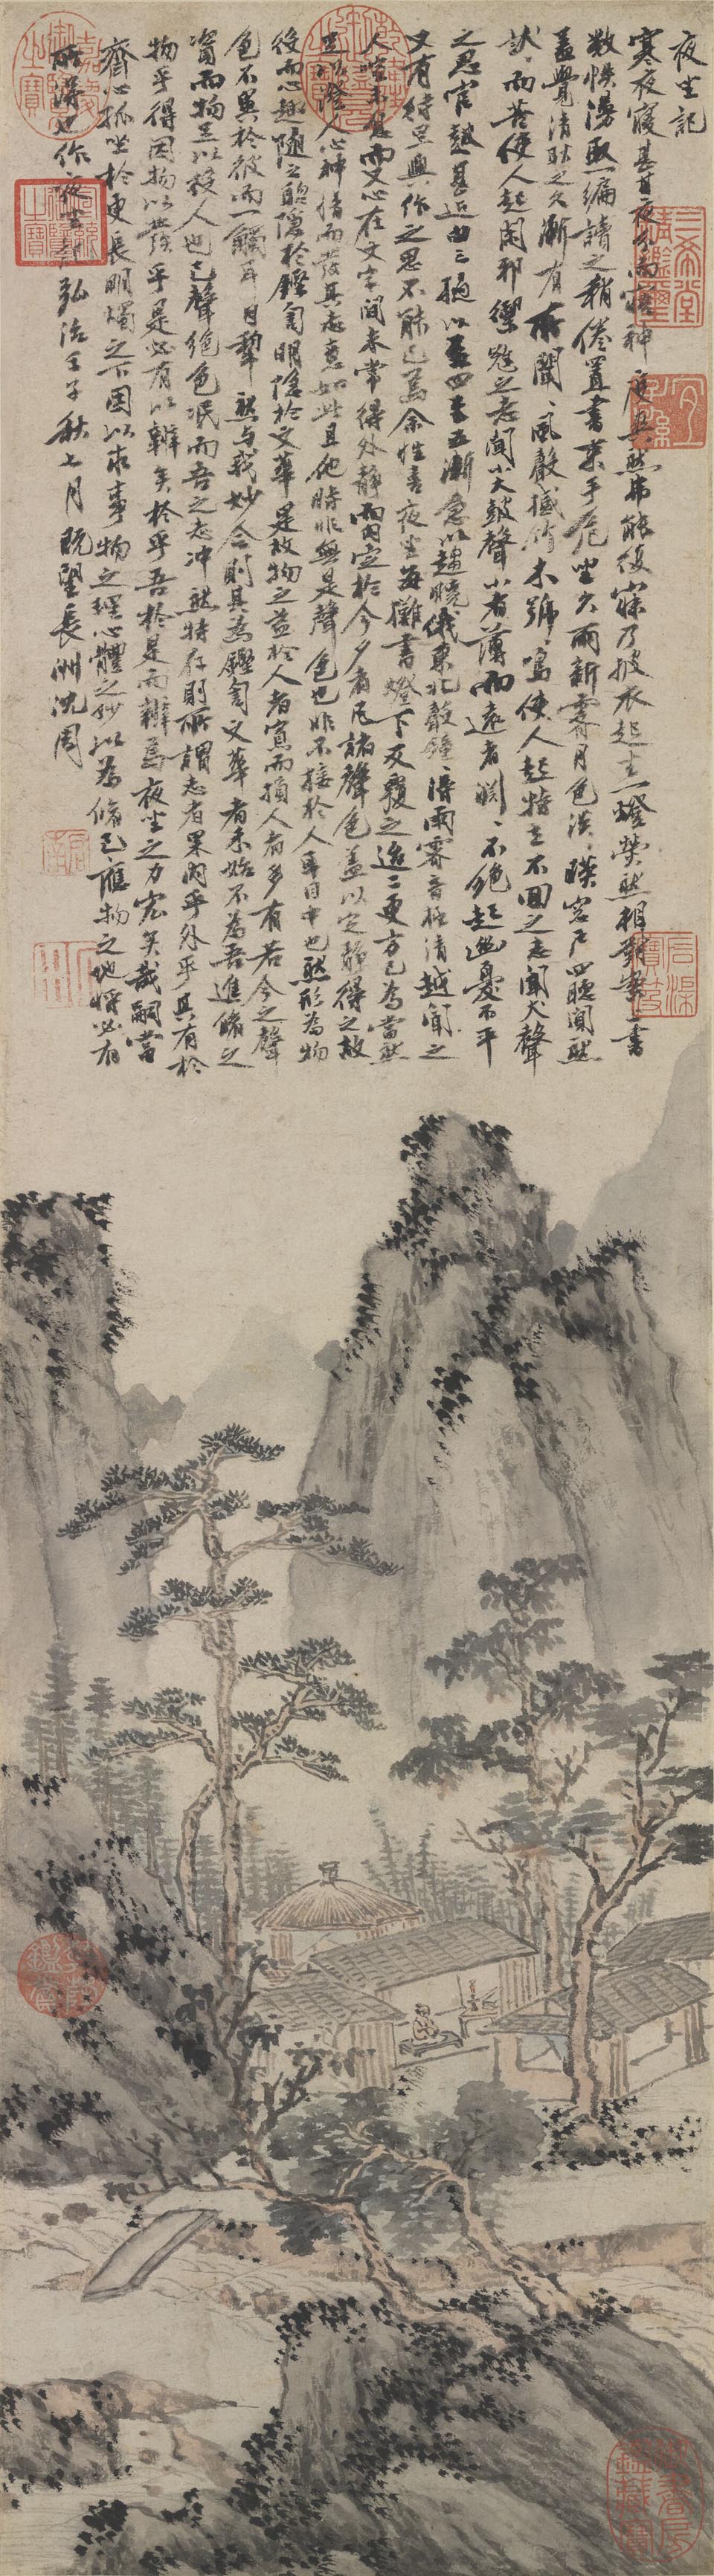 夜坐記
寒夜寢甚甘夜分而寤神度爽然弗能復寐乃披衣起坐一燈熒然相對案上書
數帙漫取一編讀之稍倦置書束手危坐久雨新霽月色淡淡映窗戶四聽闃然
蓋覺清耿之久漸有所聞聞風聲撼竹木號號鳴使人起特立不回之志聞犬聲
狀狀而苦使人起閑邪禦寇之志聞小大鼓聲小者薄而遠者淵淵不絕起幽憂不平
之思官鼓甚近由三撾以至四至五漸急以趨曉俄東北聲鐘鐘得雨霽音極清越聞之
又有待旦興作之思不能已焉余性喜夜坐每攤書燈下反覆之迨二更方已為當然
人喧未息而又心在文字間未常得外靜而內定於今夕者凡諸聲色蓋以定靜得之故
足以澄人心神情而發其志意如此且他時非無是聲色也非不接於人耳目中也然形為物
役而心趣隨之聰隱於鏗訇明隱於文華是故物之益於人者寡而損人者多有若今之聲
色不異於彼而一觸耳目犂然與我妙合則其為鏗訇文華者未始不為吾進修之
資而物足以役人也已聲絕色泯而吾之志沖然特存則所謂志者果內乎外乎其有於
物乎得因物以發乎是必有以辨矣於乎吾於是而辨焉夜坐之力宏矣哉嗣當
齋心孤坐於更長明燭之下因以求事物之理心體之妙以為修己應物之地將必有
所得也作夜坐記弘治壬子秋七月既望長洲沈周
三希堂精鑑璽
宜子孫
嘉慶御覽之寶
石渠寶笈